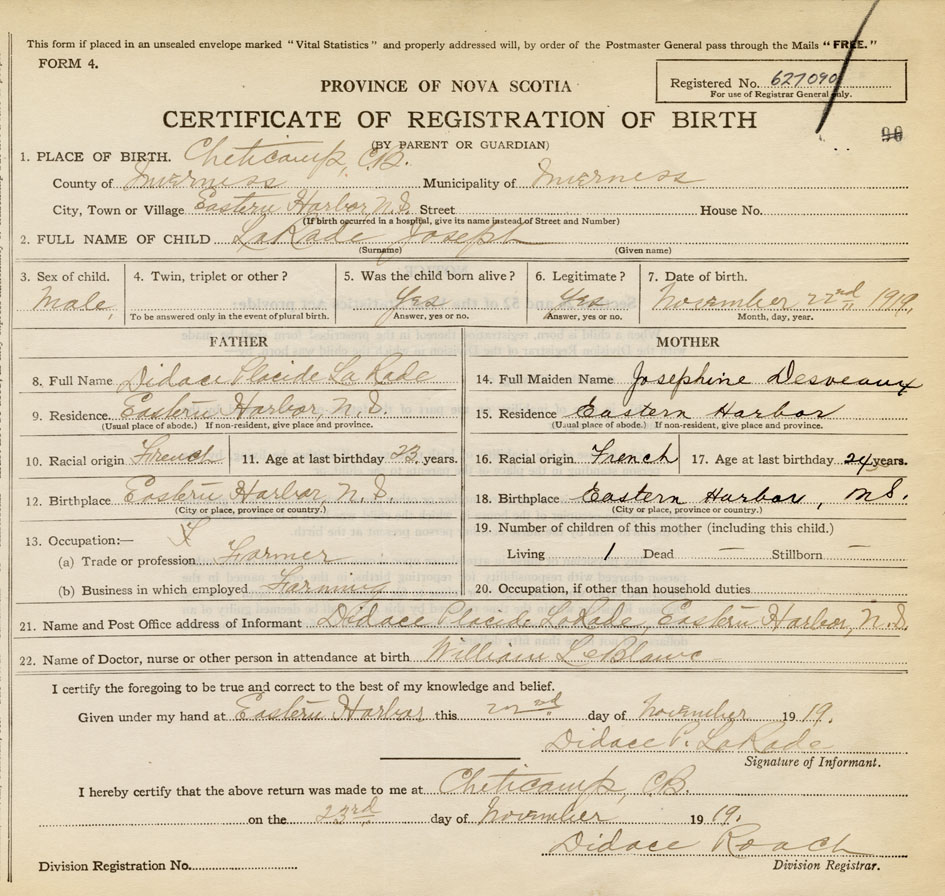 This form if placed in an unsealed envelope marked "Vital Statistics" and properly addressed will, by order of the Postmaster General pass through the Mails "FREE."
FORM 4.
Registered No. 627090
For use of Registrar General only.
PROVINCE OF NOVA SCOTIA
CERTIFICATE OF REGISTRATION OF BIRTH
(BY PARENT OR GUARDIAN)
1. PLACE OF BIRTH. Cheticamp, C.B.
County of Inverness Municipality of Inverness
City, Town or Village Eastern Harbor, N.S. Street House No.
(If birth occurred in a hospital, give its name instead of Street and Number)
2. FULL NAME OF CHILD LaRade Joseph
(Surname) (Given name)
3. Sex of child. 4. Twin, triplet or other? 5. Was the child born alive? 6. Legitimate? 7. Date of birth.
Male Yes Yes November 22nd 1919.
To be answered only in the event of plural birth. Answer, yes or no. Answer, yes or no. Month, day, year.
FATHER
8. Full Name Didace Placide LaRade
9. Residence. Eastern Harbor, N.S.
(Usual place of abode.) If non-resident, give place and province.
10. Racial origin French 11. Age at last birthday 23 years.
12. Birthplace Eastern Harbor, N.S.
(City or place, province or country.)
13. Occupation:—
(a) Trade or profession Farmer
(b) Business in which employed Farming
MOTHER
14. Full Maiden Name Josephine Desveaux
15. Residence Eastern Harbor
(Usual place of abode.) If non-resident, give place and province.
16. Racial origin French 17. Age at last birthday 24 years.
18. Birthplace Eastern Harbor, N.S.
(City or place, province or country.)
19. Number of children of this mother (including this child.)
Living 1 Dead — Stillborn —
20. Occupation, if other than household duties
21. Name and Post Office address of Informant Didace Placide LaRade, Eastern Harbor, N.S.
22. Name of Doctor, nurse or other person in attendance at birth William LeBlanc
I certify the foregoing to be true and correct to the best of my knowledge and belief.
Given under my hand at Eastern Harbor this 22nd day of November 1919.
Didace P. LaRade
Signature of Informant.
I hereby certify that the above return was made to me at Cheticamp, C.B.
on the 23rd day of November 1919.
Didace Roach
Division Registration No. Division Registrar.